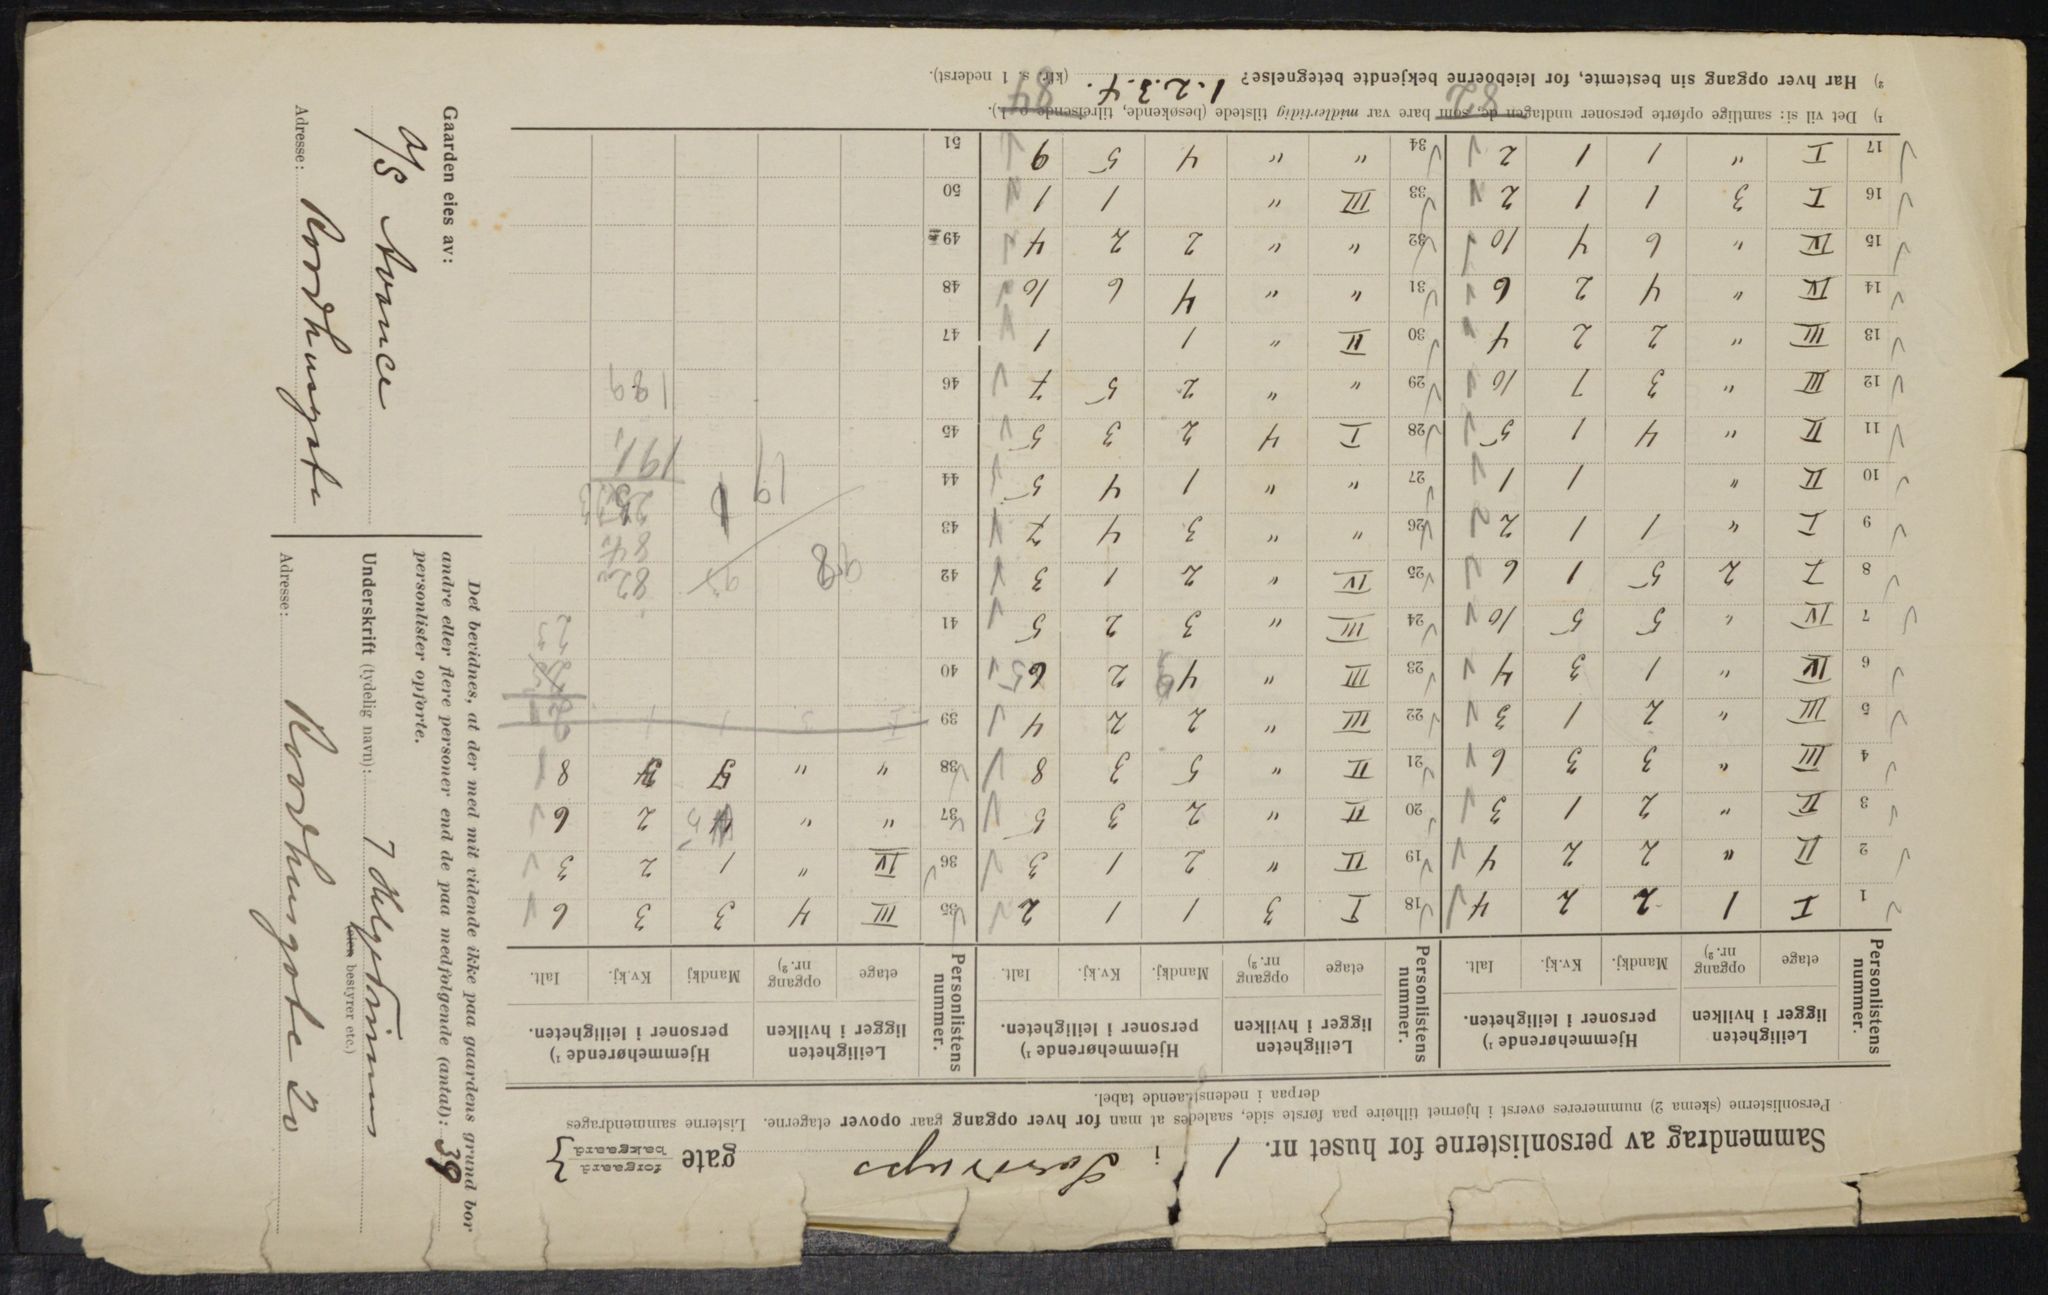 Sammendrag av personlisterne for huset nr. 1 i gate { forgaard bakgaard }
Personlisterne (skema 2) nummereres øverst i hjørnet tilhøire paa første side, saaledes at man for hver opgang gaar opover etagerne. Listerne sammendrages
derpaa i nedenstaaende tabel.
Personlistens nummer. | Leiligheten ligger i hvilken | Hjemmehørende ¹) personer i leiligheten.
etage | opgang nr. ²) | Mandkj. | Kv.kj. | Ialt.
1 I 1 2 2 4
2 II " 2 2 4
3 II " 2 1 3
4 III " 3 3 6
5 III " 2 1 3
6 IV " 1 3 4
7 IV " 5 5 10
8 I 2 5 1 6
9 I " 1 1 2
10 II " 1 1
11 II " 4 1 5
12 III " 3 7 10
13 III " 2 2 4
14 IV " 4 2 6
15 IV " 6 4 10
16 I 3 1 1 2
17 I " 1 1 2
82
Personlistens nummer. | Leiligheten ligger i hvilken | Hjemmehørende ¹) personer i leiligheten.
etage | opgang nr. ²) | Mandkj. | Kv.kj. | Ialt.
18 I 3 1 1 2
19 II " 2 1 3
20 II " 2 3 5
21 II " 5 3 8
22 III " 2 2 4
23 III " 4 2 6 5
24 III " 3 2 5
25 IV " 2 1 3
26 " " 3 4 7
27 " " 1 4 5
28 I 4 2 3 5
29 " " 2 5 7
30 II " 1 1
31 " " 4 6 10
32 " " 2 2 4
33 III " 1 1
34 " " 4 5 9
84
Personlistens nummer. | Leiligheten ligger i hvilken | Hjemmehørende ¹) personer i leiligheten.
etage | opgang nr. ²) | Mandkj | Kv.kj. | Ialt.
35 III 4 3 3 6
36 IV " 1 2 3
37 " " 4 2 6
38 " " 8
39
40
41
42
43
44
45
46
47
48
49
50
51
82
84
25
191
189
98
¹) Det vil si: samtlige opførte personer undtagen de, som bare var midlertidig tilstede (besøkende, tilreisende o. l.).
²) Har hver opgang sin bestemte, for leieboerne bekjendte betegnelse? 1. 2. 3. 4. (kfr. s. 1 nederst).
Det bevidnes, at der med mit vidende ikke paa gaardens grund bor
andre eller flere personer end de paa medfølgende (antal): 39
personlister opførte.
Underskrift (tydelig navn):
eller bestyrer etc.)
Adresse: Raadhusgate 20
Gaarden eies av:
A/S Avance
Adresse: Raadhusgate